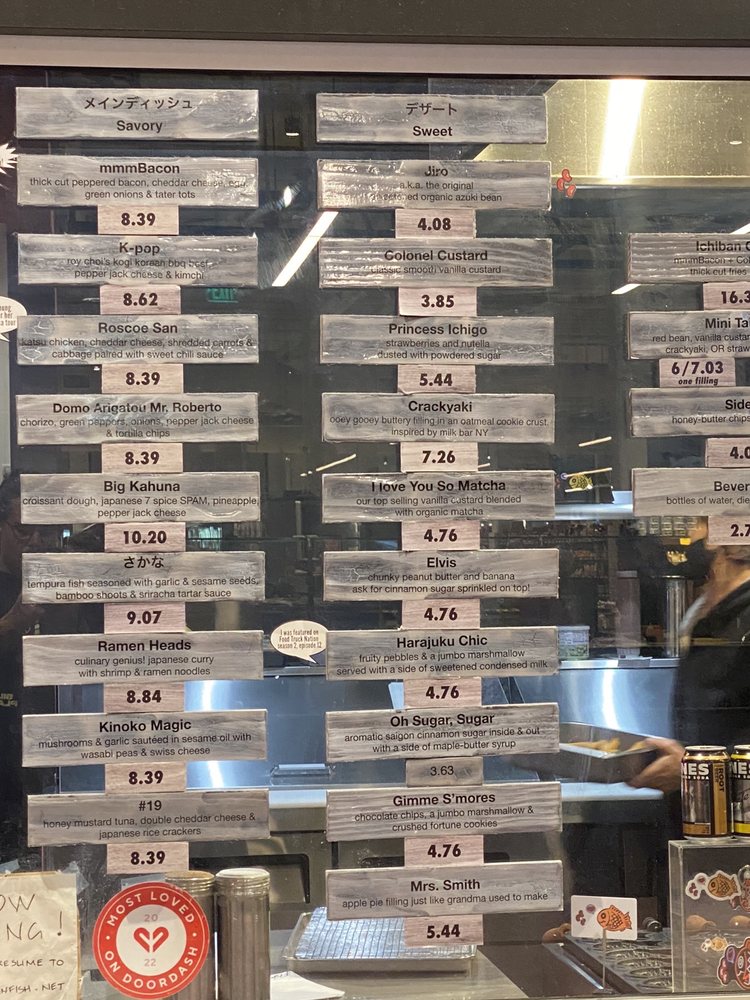 メインディッシュ
Savory
mmmBacon
thick cut peppered bacon, cheddar cheese, egg,
green onions & tater tots
8.39
K-pop
roy choi's kogi korean bbq beef,
pepper jack cheese & kimchi
8.62
Roscoe San
katsu chicken, cheddar cheese, shredded carrots &
cabbage paired with sweet chili sauce
8.39
Domo Arigatou Mr. Roberto
chorizo, green peppers, onions, pepper jack cheese
& tortilla chips
8.39
Big Kahuna
croissant dough, japanese 7 spice SPAM, pineapple,
pepper jack cheese
10.20
さかな
tempura fish seasoned with garlic & sesame seeds,
bamboo shoots & sriracha tartar sauce
9.07
Ramen Heads
culinary genius! japanese curry
with shrimp & ramen noodles
8.84
Kinoko Magic
mushrooms & garlic sautéed in sesame oil with
wasabi peas & swiss cheese
8.39
#19
honey mustard tuna, double cheddar cheese &
japanese rice crackers
8.39
デザート
Sweet
Jiro
a.k.a. the original
organic azuki bean
4.08
Colonel Custard
classic smooth vanilla custard
3.85
Princess Ichigo
strawberries and nutella
dusted with powdered sugar
5.44
Crackyaki
ooey gooey buttery filling in an oatmeal cookie crust,
inspired by milk bar NY
7.26
I love You So Matcha
our top selling vanilla custard blended
with organic matcha
4.76
Elvis
chunky peanut butter and banana
ask for cinnamon sugar sprinkled on top!
4.76
I was featured on
Food Truck Nation
season 2, episode 12
Harajuku Chic
fruity pebbles & a jumbo marshmallow
served with a side of sweetened condensed milk
4.76
Oh Sugar, Sugar
aromatic saigon cinnamon sugar inside & out
with a side of maple-butter syrup
3.63
Gimme S'mores
chocolate chips, a jumbo marshmallow &
crushed fortune cookies
4.76
Mrs. Smith
apple pie filling just like grandma used to make
5.44
Ichiban
mmmBacon +
thick cut fries
16.3
Mini
red bean, vanilla
crackyaki, OR
6/7.03
one filling
honey-butter chips
4.0
bottles of water,
2.7
EXIT
a tour
MOST LOVED
20
22
ON DOORDASH
TO
ROOT